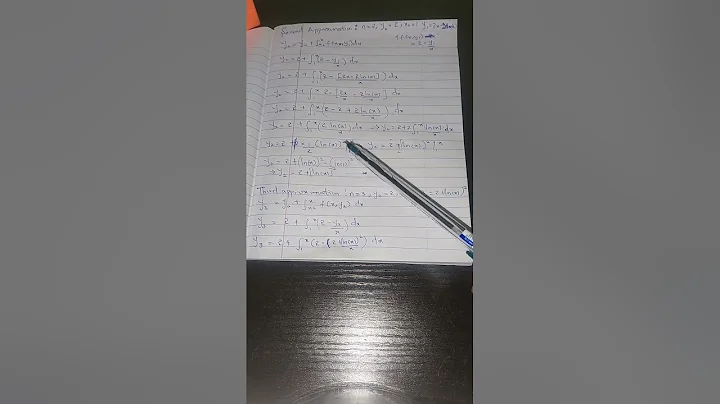 Second Approximation : n=2, y₀ = 2, x₀=1, y₁=2x-2ln(x)
y₂ = y₀ + ∫ₓ₀ˣ f(x,y₁)dx f(x,y₁) = 2 - y₁/x
y₂ = 2 + ∫₁ˣ (2 - y₁/x) dx
y₂ = 2 + ∫₁ˣ (2 - [2x-2ln(x)]/x) dx
y₂ = 2 + ∫₁ˣ 2 - [2x/x - 2ln(x)/x] dx
y₂ = 2 + ∫₁ˣ (2 - 2 + 2ln(x)/x) dx
y₂ = 2 + ∫₁ˣ (2 ln(x)/x) dx → y₂ = 2+2∫₁ˣ ln(x)/x dx
y₂ = 2 + (ln(x))² y₂ = 2 + [ln(x)]² |ˣ
y₂ = 2 + [ln(x)]² - [ln(1)]²
→ y₂ = 2+[ln(x)]²
Third approximation : n=3, y₀=2, = 2+ln(x)²
y₃ = y₀ + ∫ₓ₀ˣ f(x,y₂) dx
y₃ = 2 + ∫₁ˣ (2 - y₂/x) dx
y₃ = 2 + ∫₁ˣ (2 - (2+ln(x)²)/x) dx